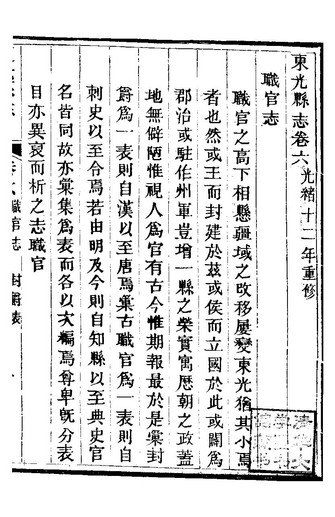 東光縣志卷六光緒十二年重修
職官志
職官之高下相懸疆域之改移屢變東光猶其小焉
者也然或王而封建於茲或侯而立國於此或闢為
郡治或駐作州軍豈增一縣之榮實寓歷朝之政蓋
地無僻陋惟視人為官有古今惟期報最於是彙封
爵為一表則自漢以至唐焉彙古職官為一表則自
刺史以至令焉若由明及今則自知縣以至典史官
名皆同故亦彙集為表而各以次編焉尊卑既分表
目亦異裒而析之志職官
職官志 封爵表